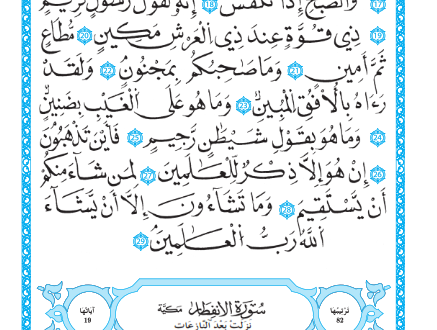 وَٱلصُّبْحِ إِذَا تَنَفَّسَ ١٨ إِنَّهُۥ لَقَوْلُ رَسُولٍ كَرِيمٍ
١٩ ذِي قُوَّةٍ عِندَ ذِي ٱلْعَرْشِ مَكِينٍ ٢٠ مُّطَاعٍ
ثَمَّ أَمِينٍ ٢١ وَمَا صَاحِبُكُم بِمَجْنُونٍ ٢٢ وَلَقَدْ
رَءَاهُ بِٱلْأُفُقِ ٱلْمُبِينِ ٢٣ وَمَا هُوَ عَلَى ٱلْغَيْبِ بِضَنِينٍ
٢٤ وَمَا هُوَ بِقَوْلِ شَيْطَٰنٍ رَّجِيمٍ ٢٥ فَأَيْنَ تَذْهَبُونَ
٢٦ إِنْ هُوَ إِلَّا ذِكْرٌ لِّلْعَٰلَمِينَ ٢٧ لِمَن شَآءَ مِنكُمْ
أَنْ يَسْتَقِيمَ ٢٨ وَمَا تَشَآءُونَ إِلَّآ أَنْ يَّشَآءَ
ٱللَّهُ رَبُّ ٱلْعَٰلَمِينَ ٢٩
تَرْتِيبُهَا 82
سُورَةُ الانفِطَار مَكِّيَّة
نَزَلَتْ بَعْدَ النَّازِعَات
آيَاتُهَا 19